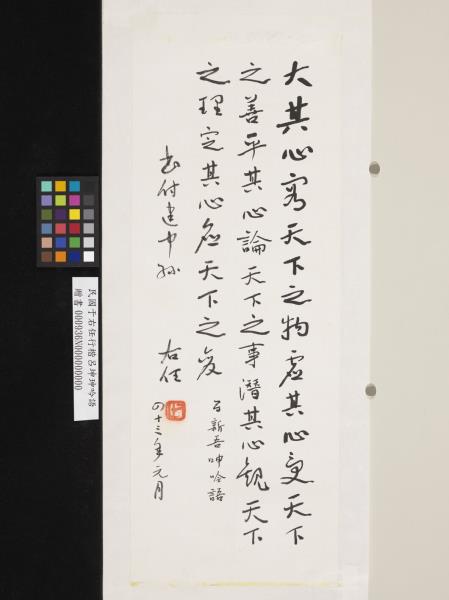 大其心容天下之物虛其心受天下
之善平其心論天下之事潛其心觀天下
之理定其心應天下之變
呂新吾呻吟語
書付建中孫
右任
四十三年元月
民國于右任行楷呂坤呻吟語
贈書 000936N000000000